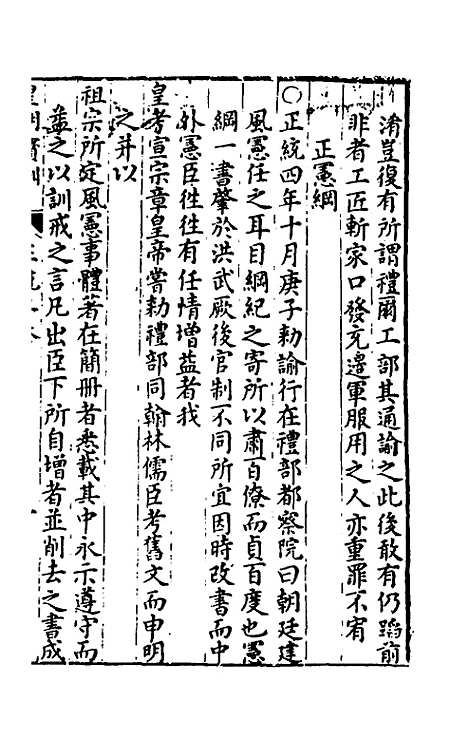 淆豈復有所謂禮爾工部其通諭之此後敢有仍蹈前
非者工匠斬家口發充邊軍服用之人亦重罪不宥
正憲綱
○正統四年十月庚子勅諭行在禮部都察院曰朝廷建
風憲任之耳目綱紀之寄所以肅百僚而貞百度也憲
綱一書肇於洪武厥後官制不同所宜因時改書而中
外憲臣徃徃有任情增益者我
皇考宣宗章皇帝嘗勅禮部同翰林儒臣考舊文而申明
之并以
祖宗所定風憲事體著在簡冊者悉載其中永示遵守而
益之以訓戒之言凡出臣下所自增者並削去之書成